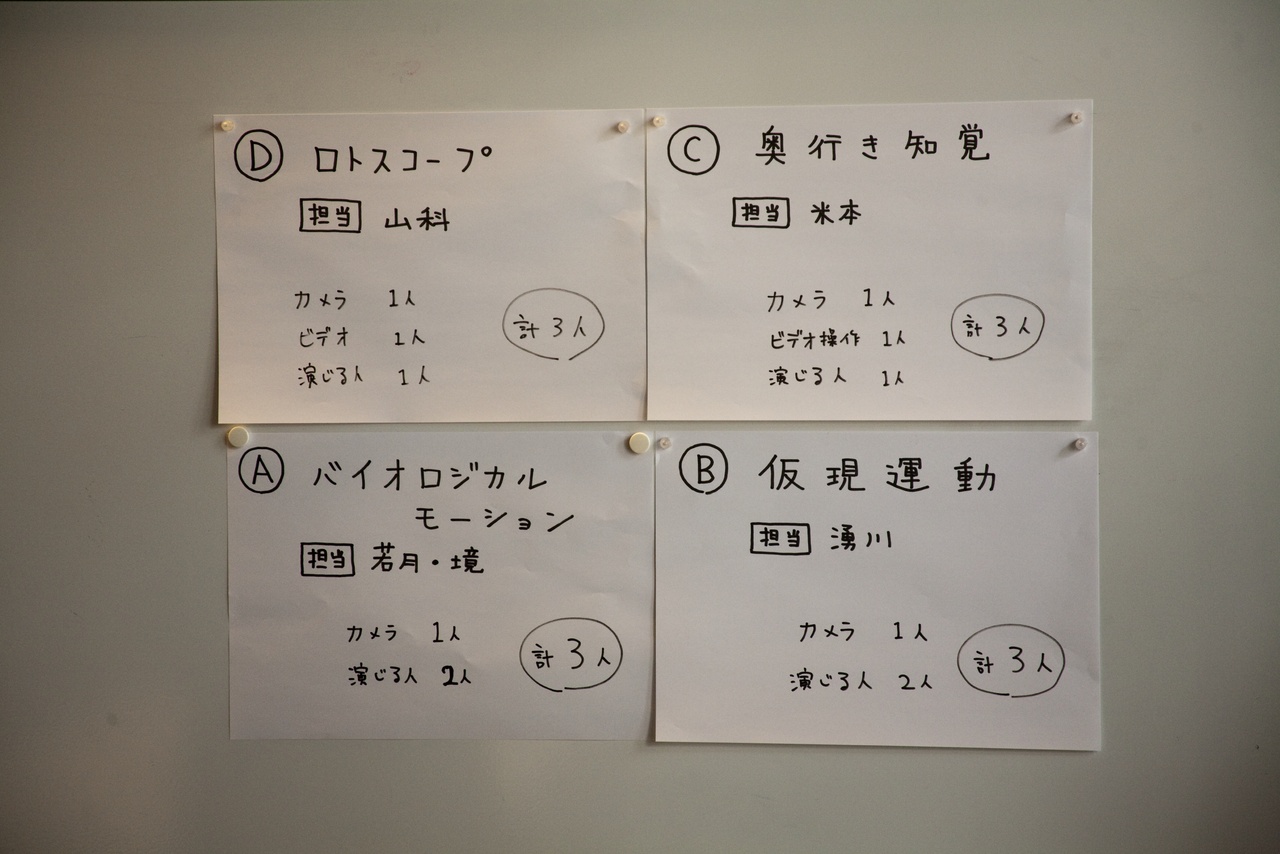 Ⓓ ロトスコープ
担当 山科
カメラ 1人
ビデオ 1人
演じる人 1人
計3人
Ⓒ 奥行き知覚
担当 米本
カメラ 1人
ビデオ操作 1人
演じる人 1人
計3人
Ⓐ バイオロジカル
モーション
担当 若月・境
カメラ 1人
演じる人 2人
計3人
Ⓑ 仮現運動
担当 湧川
カメラ 1人
演じる人 2人
計3人